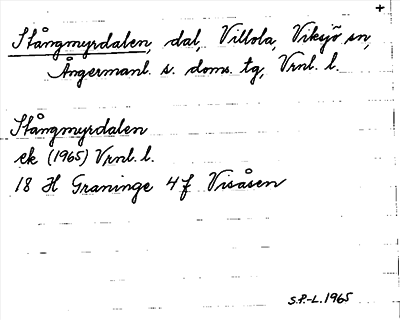 +
Stångmyrdalen, dal, Villola, Viksjö sn,
Ångermanl. s. doms. tg, Vrnl. l.
Stångmyrdalen
ek (1965) Vrnl. l.
18 H Graninge 4 f Visåsen
S.P.-L. 1965